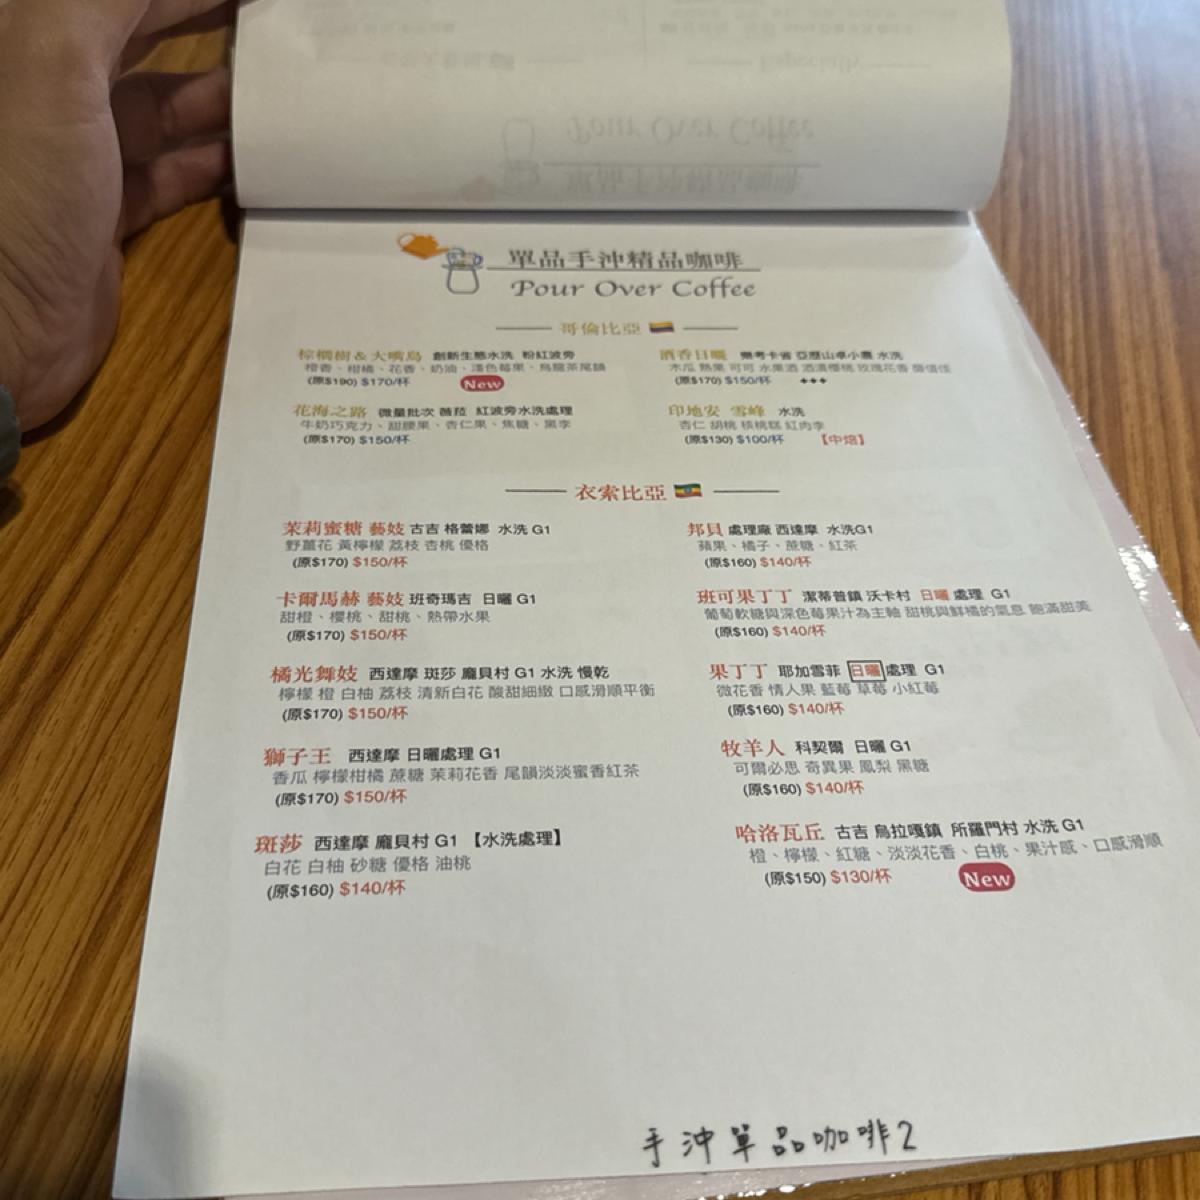 單品手沖精品咖啡
Pour Over Coffee
哥倫比亞
棕櫚樹＆大嘴鳥 創新生態水洗 粉紅波旁
橙香、柑橘、花香、奶油、淺色莓果、烏龍茶尾韻
(原$190) $170/杯 New
花海之路 微量批次 薇菈 紅波旁水洗處理
牛奶巧克力、甜腰果、杏仁果、焦糖、黑李
(原$170) $150/杯
酒香日曬 樂考卡省 亞歷山卓小農 水洗
木瓜 熟果 可可 水果酒 酒漬櫻桃 玫瑰花香
(原$170) $150/杯 ✦✦✦
印地安 雪峰 水洗
杏仁 胡桃 核桃糕 紅肉李
(原$130) $100/杯 【中焙】
衣索比亞
茉莉蜜糖 藝妓 古吉 格蕾娜 水洗 G1
野薑花 黃檸檬 荔枝 杏桃 優格
(原$170) $150/杯
卡爾馬赫 藝妓 班奇瑪吉 日曬 G1
甜橙、櫻桃、甜桃、熱帶水果
(原$170) $150/杯
橘光舞妓 西達摩 斑莎 龐貝村 G1 水洗 慢乾
檸檬 橙 白柚 荔枝 清新白花 酸甜細緻 口感滑順平衡
(原$170) $150/杯
獅子王 西達摩 日曬處理 G1
香瓜 檸檬柑橘 蔗糖 茉莉花香 尾韻淡淡蜜香紅茶
(原$170) $150/杯
斑莎 西達摩 龐貝村 G1 【水洗處理】
白花 白柚 砂糖 優格 油桃
(原$160) $140/杯
邦貝 處理廠 西達摩 水洗G1
蘋果、橘子、蔗糖、紅茶
(原$160) $140/杯
班可果丁丁 潔蒂普鎮 沃卡村 日曬 處理 G1
葡萄軟糖與深色莓果汁為主軸 甜桃與鮮橘的氣息 飽滿甜美
(原$160) $140/杯
果丁丁 耶加雪菲 日曬 處理 G1
微花香 情人果 藍莓 草莓 小紅莓
(原$160) $140/杯
牧羊人 科契爾 日曬 G1
可爾必思 奇異果 鳳梨 黑糖
(原$160) $140/杯
哈洛瓦丘 古吉 烏拉嘎鎮 所羅門村 水洗 G1
橙、檸檬、紅糖、淡淡花香、白桃、果汁感、口感滑順
(原$150) $130/杯 New
手沖單品咖啡2